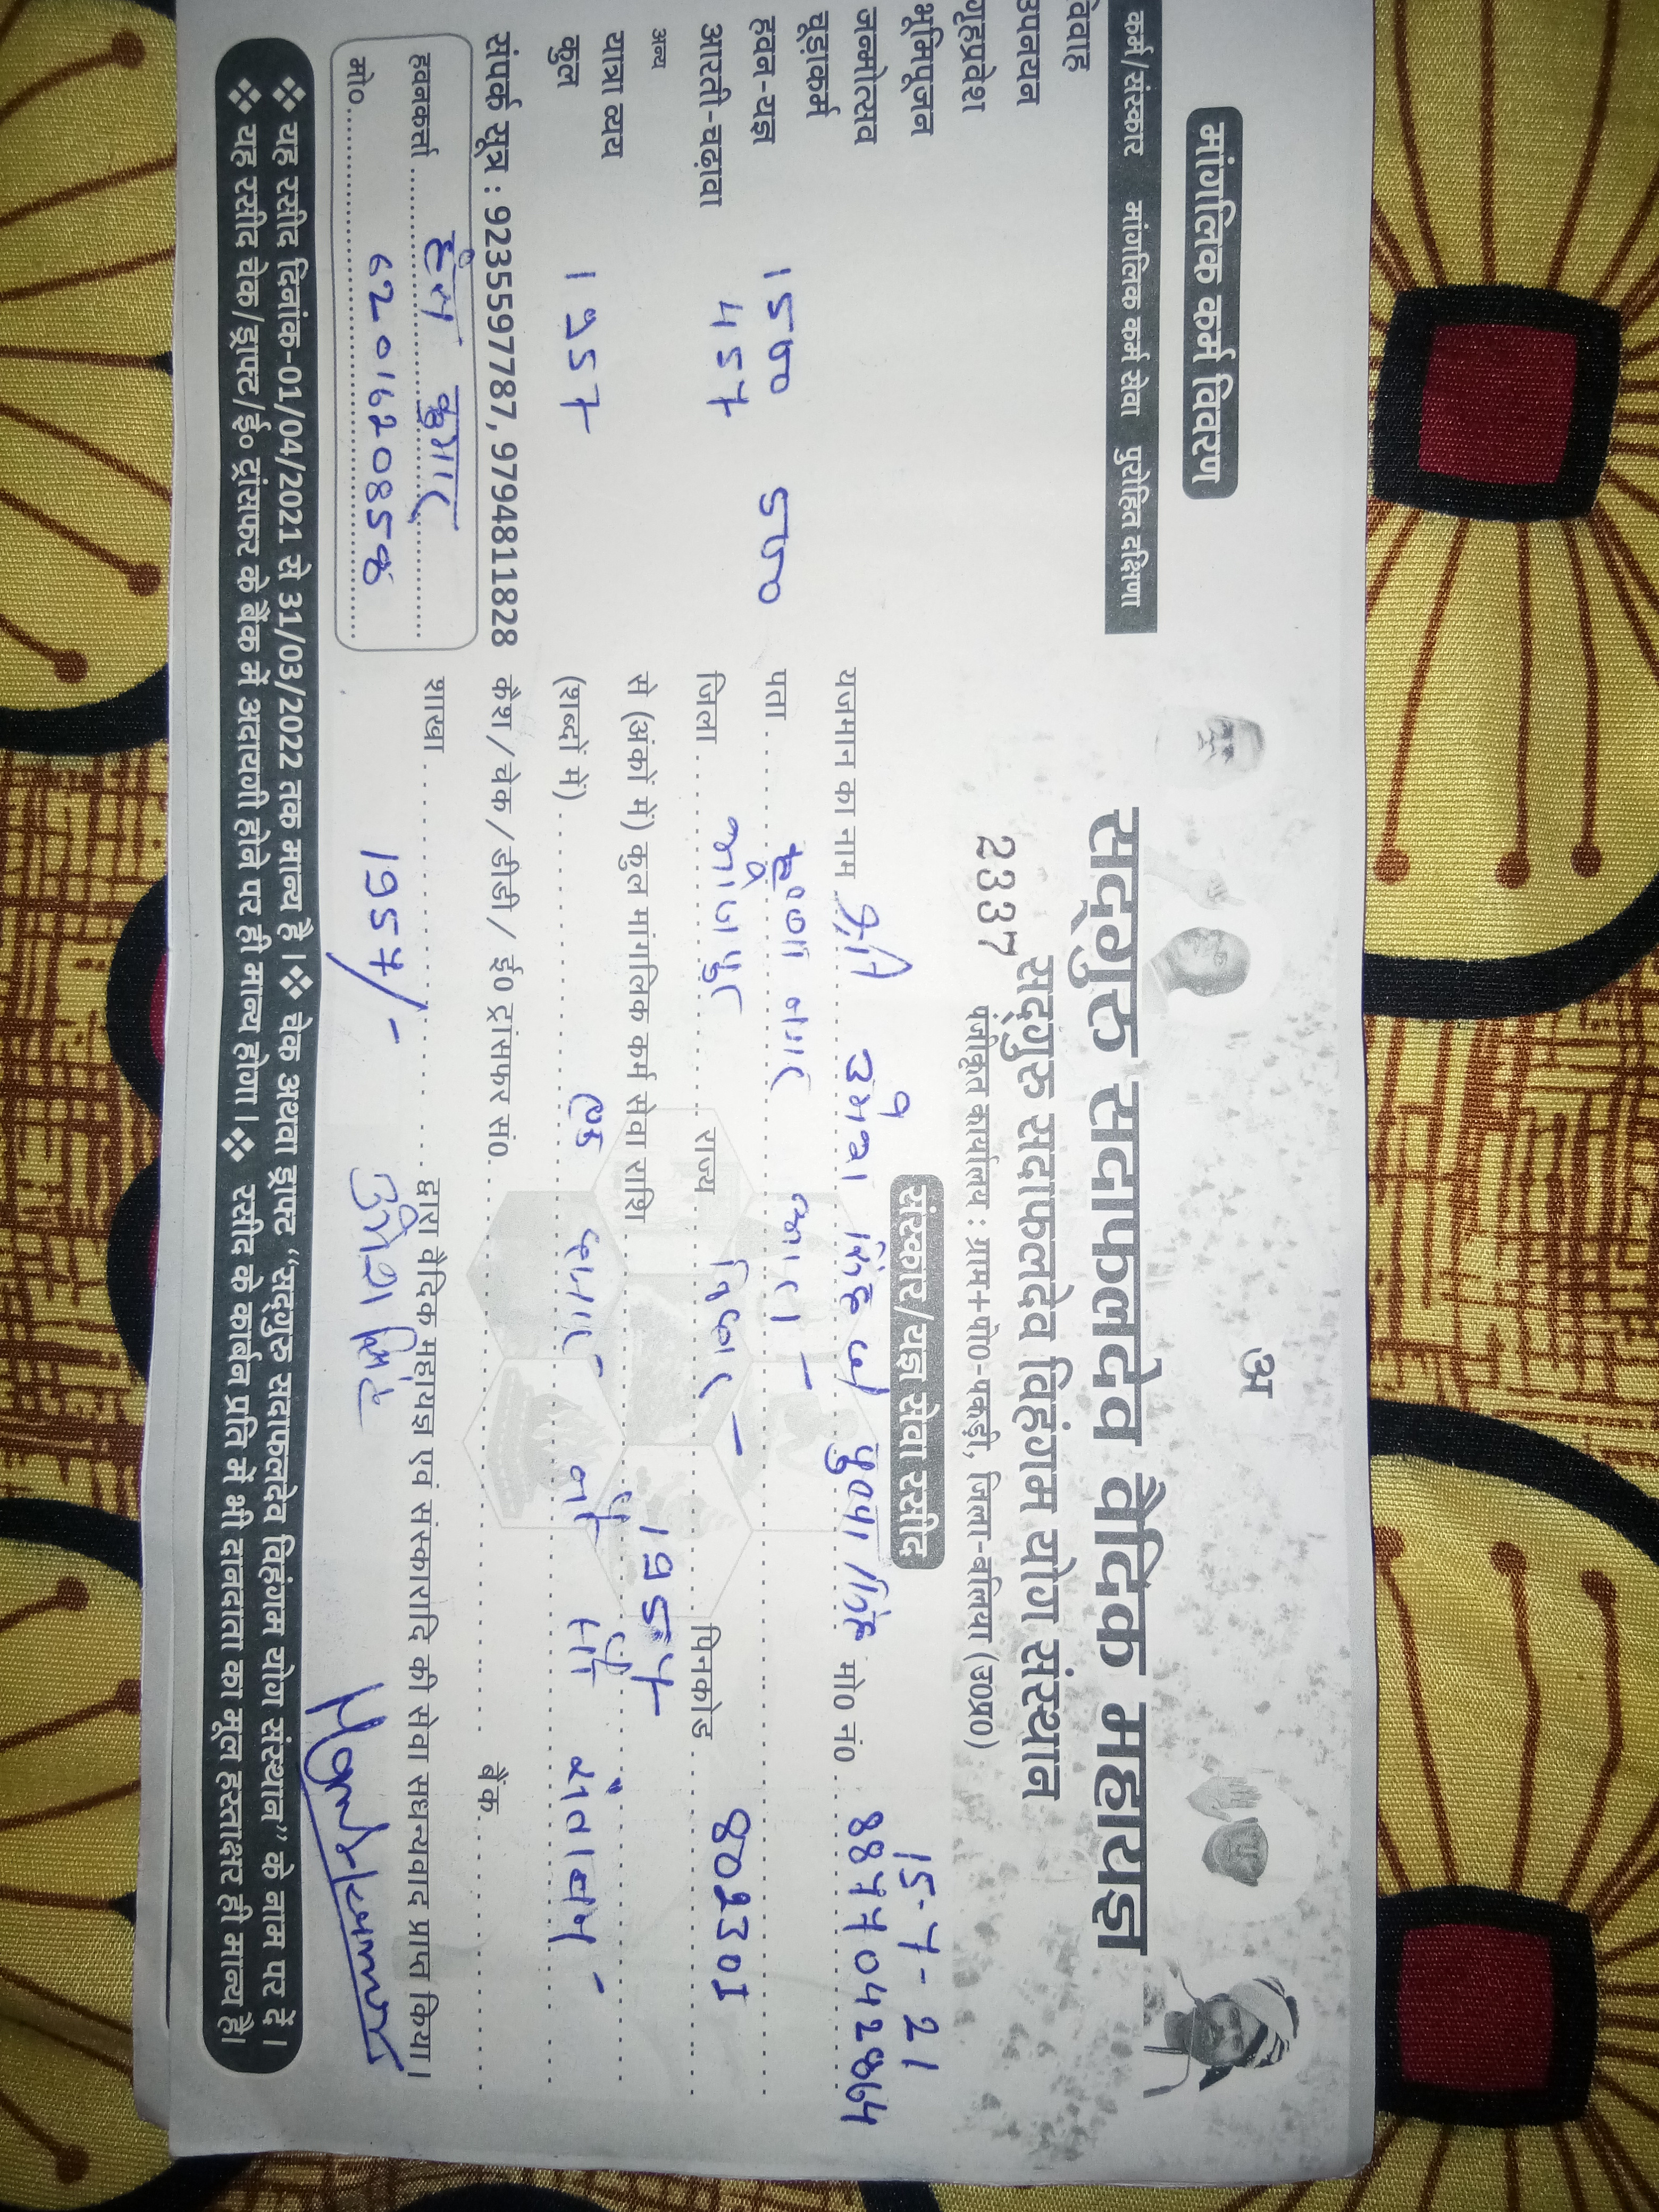 अ
सद्गुरु सदाफलदेव वैदिक महायज्ञ
सद्गुरु सदाफलदेव विहंगम योग संस्थान
2337
पंजीकृत कार्यालय : ग्राम+पो0-पकड़ी, जिला-बलिया (उ0प्र0)
संस्कार/यज्ञ सेवा रसीद
15-7-21
यजमान का नाम श्री उमेश सिंह मो0 नं0 8877042864
पता कृष्णा नगर आरा -
जिला भोजपुर राज्य बिहार - पिनकोड 802301
से (अंकों में) कुल मांगलिक कर्म सेवा राशि 1957
(शब्दों में) एक हजार नौ सौ संतावन -
कैश/चेक/डीडी/ ई0 ट्रांसफर सं0 बैंक
शाखा द्वारा वैदिक महायज्ञ एवं संस्कारादि की सेवा सधन्यवाद प्राप्त किया।
1957/- उमेश सिंह
मांगलिक कर्म विवरण
कर्म/संस्कार मांगलिक कर्म सेवा पुरोहित दक्षिणा
विवाह
उपनयन
गृहप्रवेश
भूमिपूजन
जन्मोत्सव
चूड़ाकर्म
हवन-यज्ञ 1500 500
आरती-चढ़ावा 457
अन्य
यात्रा व्यय
कुल 1957
संपर्क सूत्र : 9235597787, 9794811828
हवनकर्ता कुमार
मो0. 6201620858
❖ यह रसीद दिनांक-01/04/2021 से 31/03/2022 तक मान्य है।❖ चेक अथवा ड्राफ्ट “सद्गुरु सदाफलदेव विहंगम योग संस्थान” के नाम पर दें।
❖ यह रसीद चेक/ड्राफ्ट/ई0 ट्रांसफर के बैंक में अदायगी होने पर ही मान्य होगा।❖ रसीद के कार्बन प्रति में भी दानदाता का मूल हस्ताक्षर ही मान्य है।